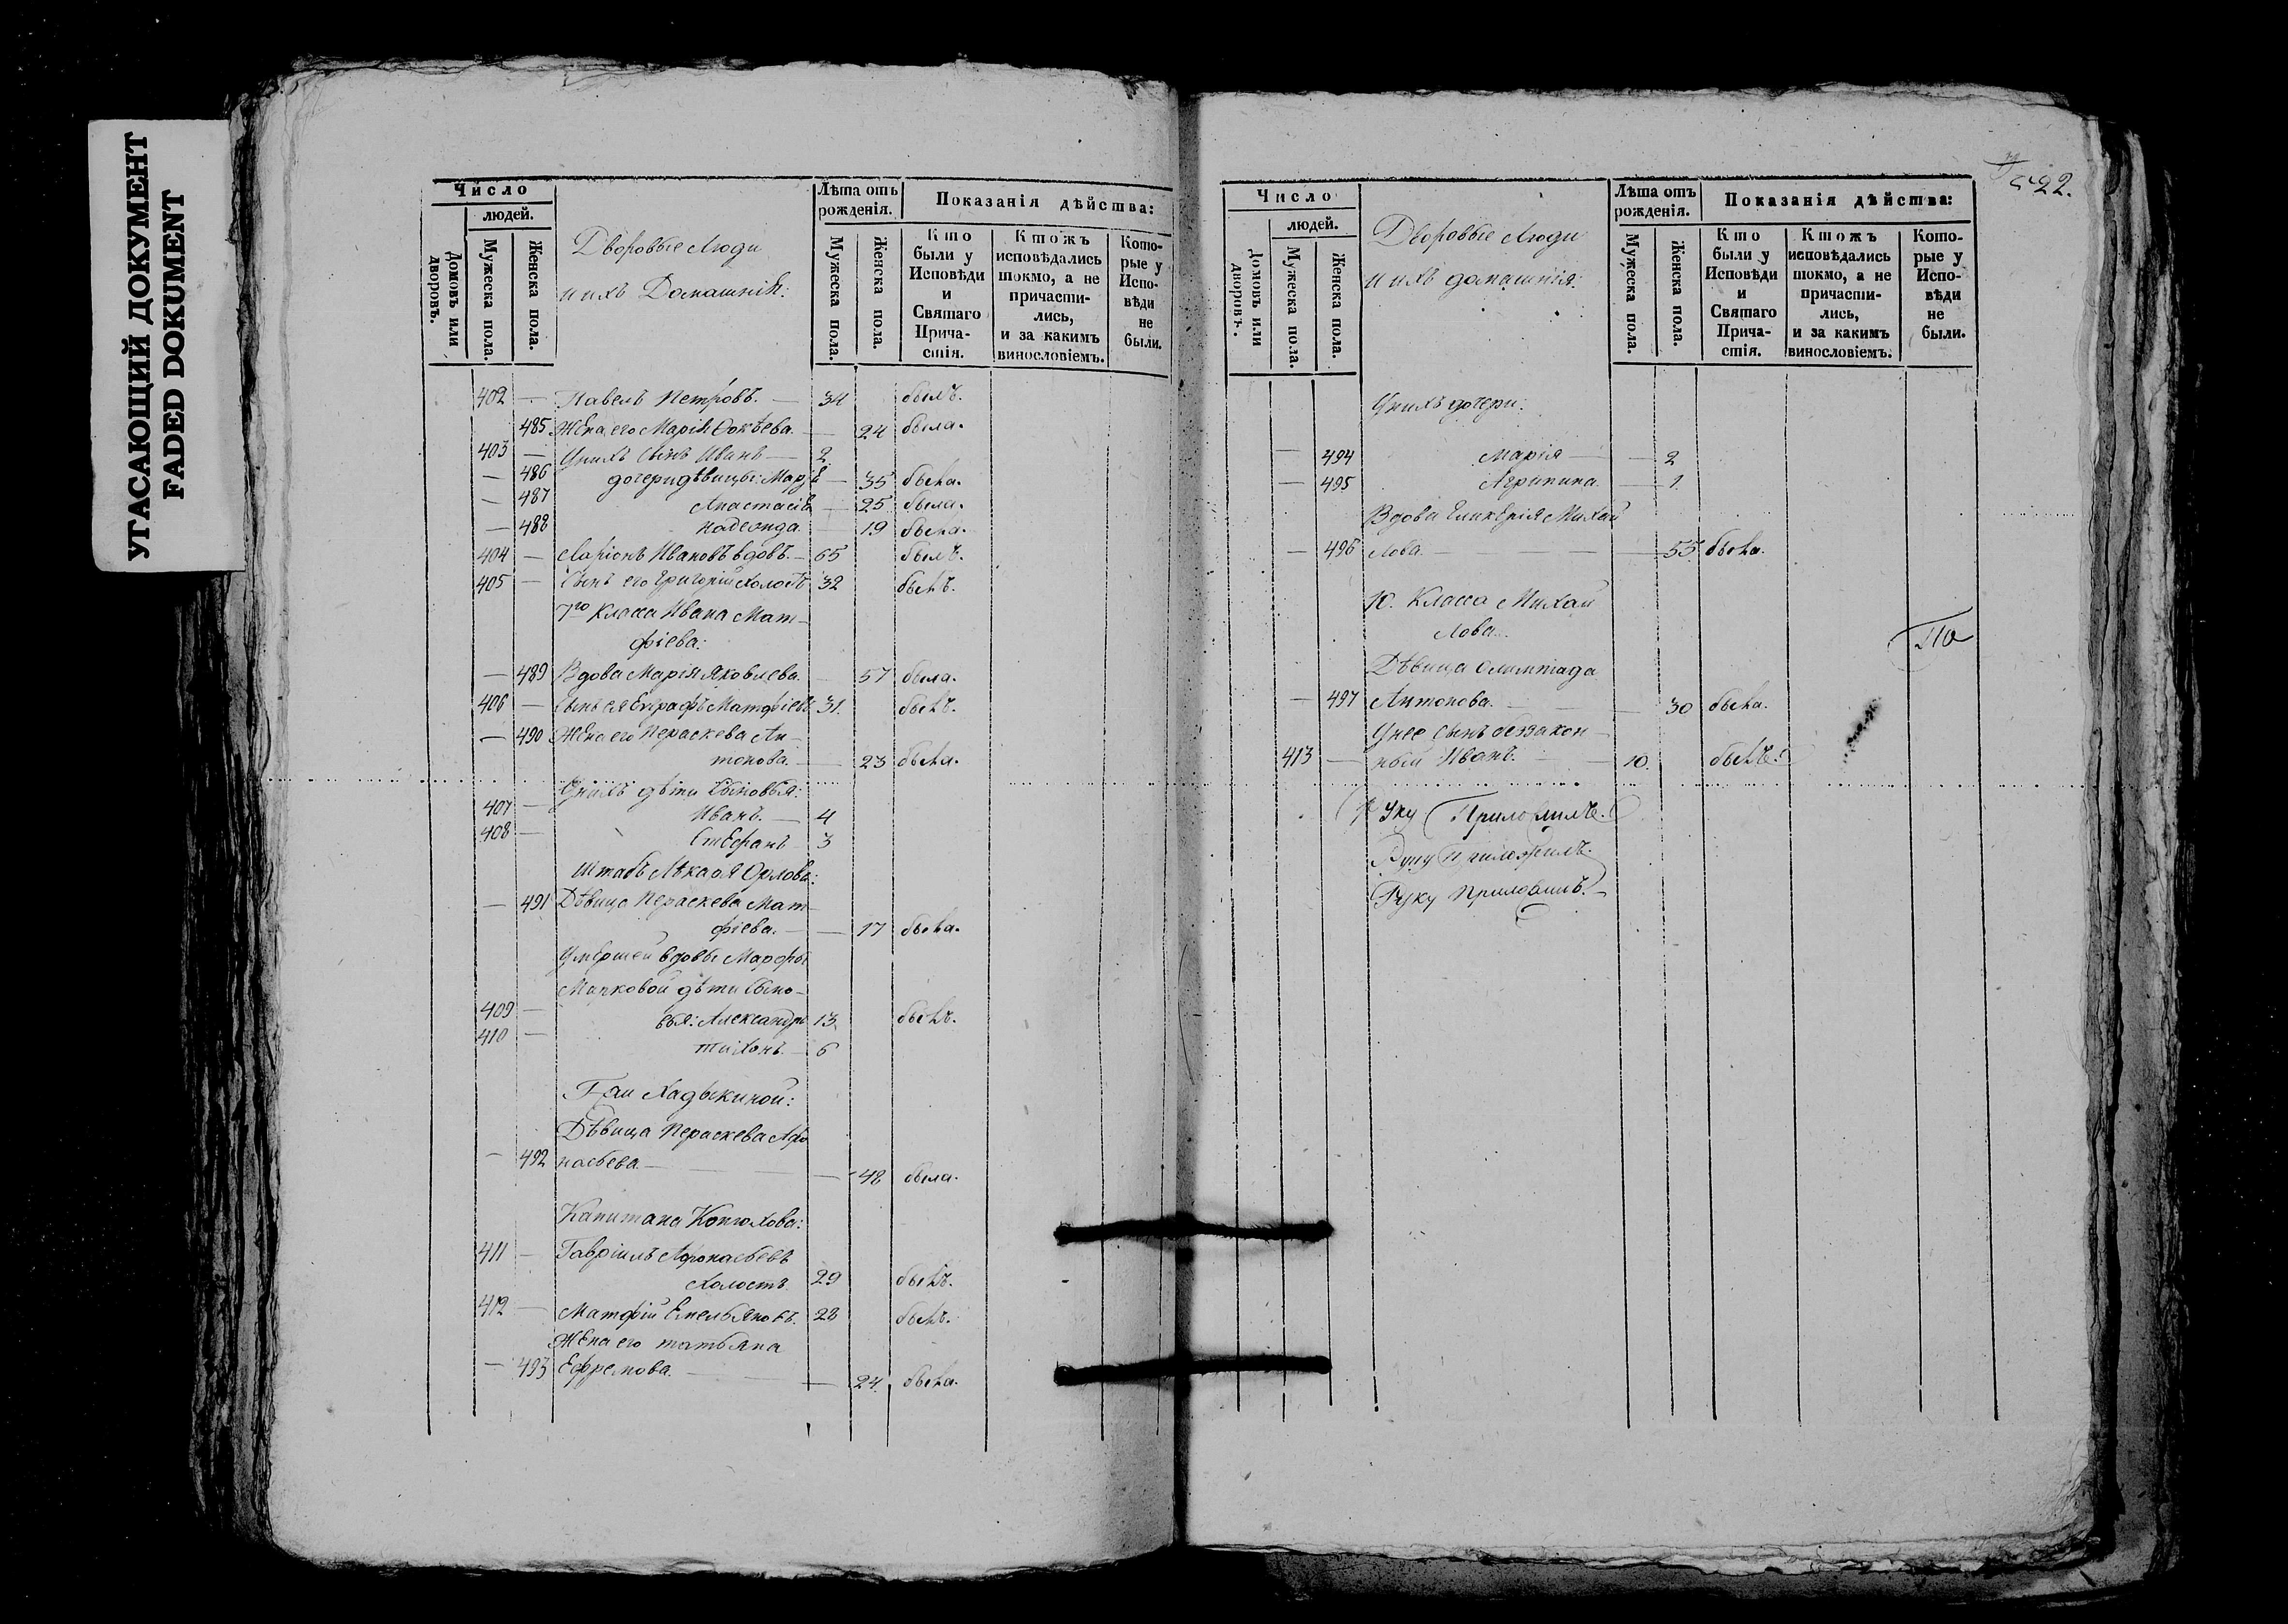 УГАСАЮЩИЙ ДОКУМЕНТ
FADED DOKUMENT
Число
людей.
Домовъ или дворовъ.
Мужеска пола.
Женска пола.
Дворовые Люди
и ихъ Домашніи:
Лѣта отъ рожденія.
Мужеска пола.
Женска пола.
Показанія дѣйства:
Кто были у Исповѣди и Святаго Прича- стія.
Ктожъ исповѣдались токмо, а не причасти- лись, и за какимъ винословіемъ.
Кото- рые у Испо- вѣди не были.
402 — Павелъ Петровъ. — 34 былъ.
485 Жена его Марія Фокѣева. — 24 была.
403 — У нихъ сынъ Иванъ — 2
— 486 дочери дѣвицы: Марія — 35 была.
— 487 Анастасія — 25 была.
— 488 Надежда — 19 была.
404 — Ларіонъ Ивановъ вдовъ. — 65 былъ.
405 — Сынъ его Григорій холостъ 32 былъ.
7го Класса Ивана Мат-
фіева:
— 489 Вдова Марія Яковлева. — 57 была.
406 — Сынъ ея Евграфъ Матфіевъ 31. былъ.
— 490 Жена его Пераскева Ан-
тонова. — 23 была.
У нихъ дѣти сыновья:
407 — Иванъ. — 4
408 — Стефанъ — 3
Штабъ Лѣкаря Орлова:
— 491 Дѣвица Пераскева Мат-
фіева. — — 17 была.
Умершей вдовы Марфы
Марковой дѣти сыно-
409 — вья: Александръ 13. былъ.
410 — Тихонъ. — 6
Г-жи Хадыкиной:
Дѣвица Пераскева Афо
— 492 насьева — — 48 была.
Капитана Копюхова:
411 — Гавріилъ Афонасьевъ
холостъ. 29 былъ.
412 — Матфій Емельяновъ. 28 былъ.
Жена его Татьяна
— 493 Ефремова. — — 24. была.
22.
Число
людей.
Домовъ или дворовъ.
Мужеска пола.
Женска пола.
Дворовые Люди
и ихъ домашнія:
Лѣта отъ рожденія.
Мужеска пола.
Женска пола.
Показанія дѣйства:
Кто были у Исповѣди и Святаго Прича- стія.
Ктожъ исповѣдались токмо, а не причасти- лись, и за какимъ винословіемъ.
Кото- рые у Испо- вѣди не были.
У нихъ дочери:
— 494 Марія — — 2
— 495 Агрипина. — 1.
Вдова Гликерія Михай
— 496 лова. — — 55 была.
10. Класса Михай
лова.
Дѣвица Олимпіада
— 497 Антонова. — — 30 была.
У нее сынъ беззакон-
413 — ный Иванъ. — 10. былъ.
Руку Приложилъ.
Руку Приложилъ.
Руку Приложилъ.